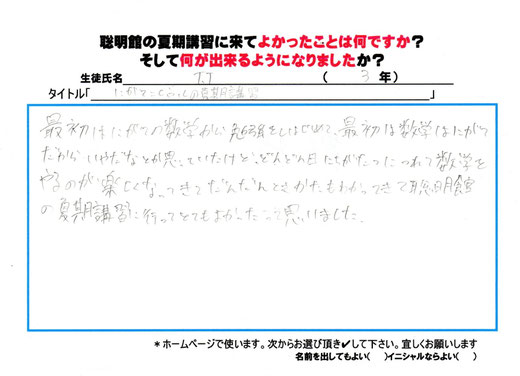 聡明館の夏期講習に来てよかったことは何ですか？
そして何が出来るようになりましたか？
生徒氏名 T.T （ 3 年）
タイトル「にがてこくふくの夏期講習」
最初はにがての数学から勉強をしはじめて、最初は数学はにがて
だからいやだなとか思っていたけど、どんどん日にちがたつにつれて数学を
やるのが楽しくなってきてだんだんときかたもわかってきて聡明館
の夏期講習に行ってとてもよかったって思いました。
＊ホームページで使います。次からお選び頂き✔して下さい。宜しくお願いします
名前を出してもよい（ ）イニシャルならよい（ ）